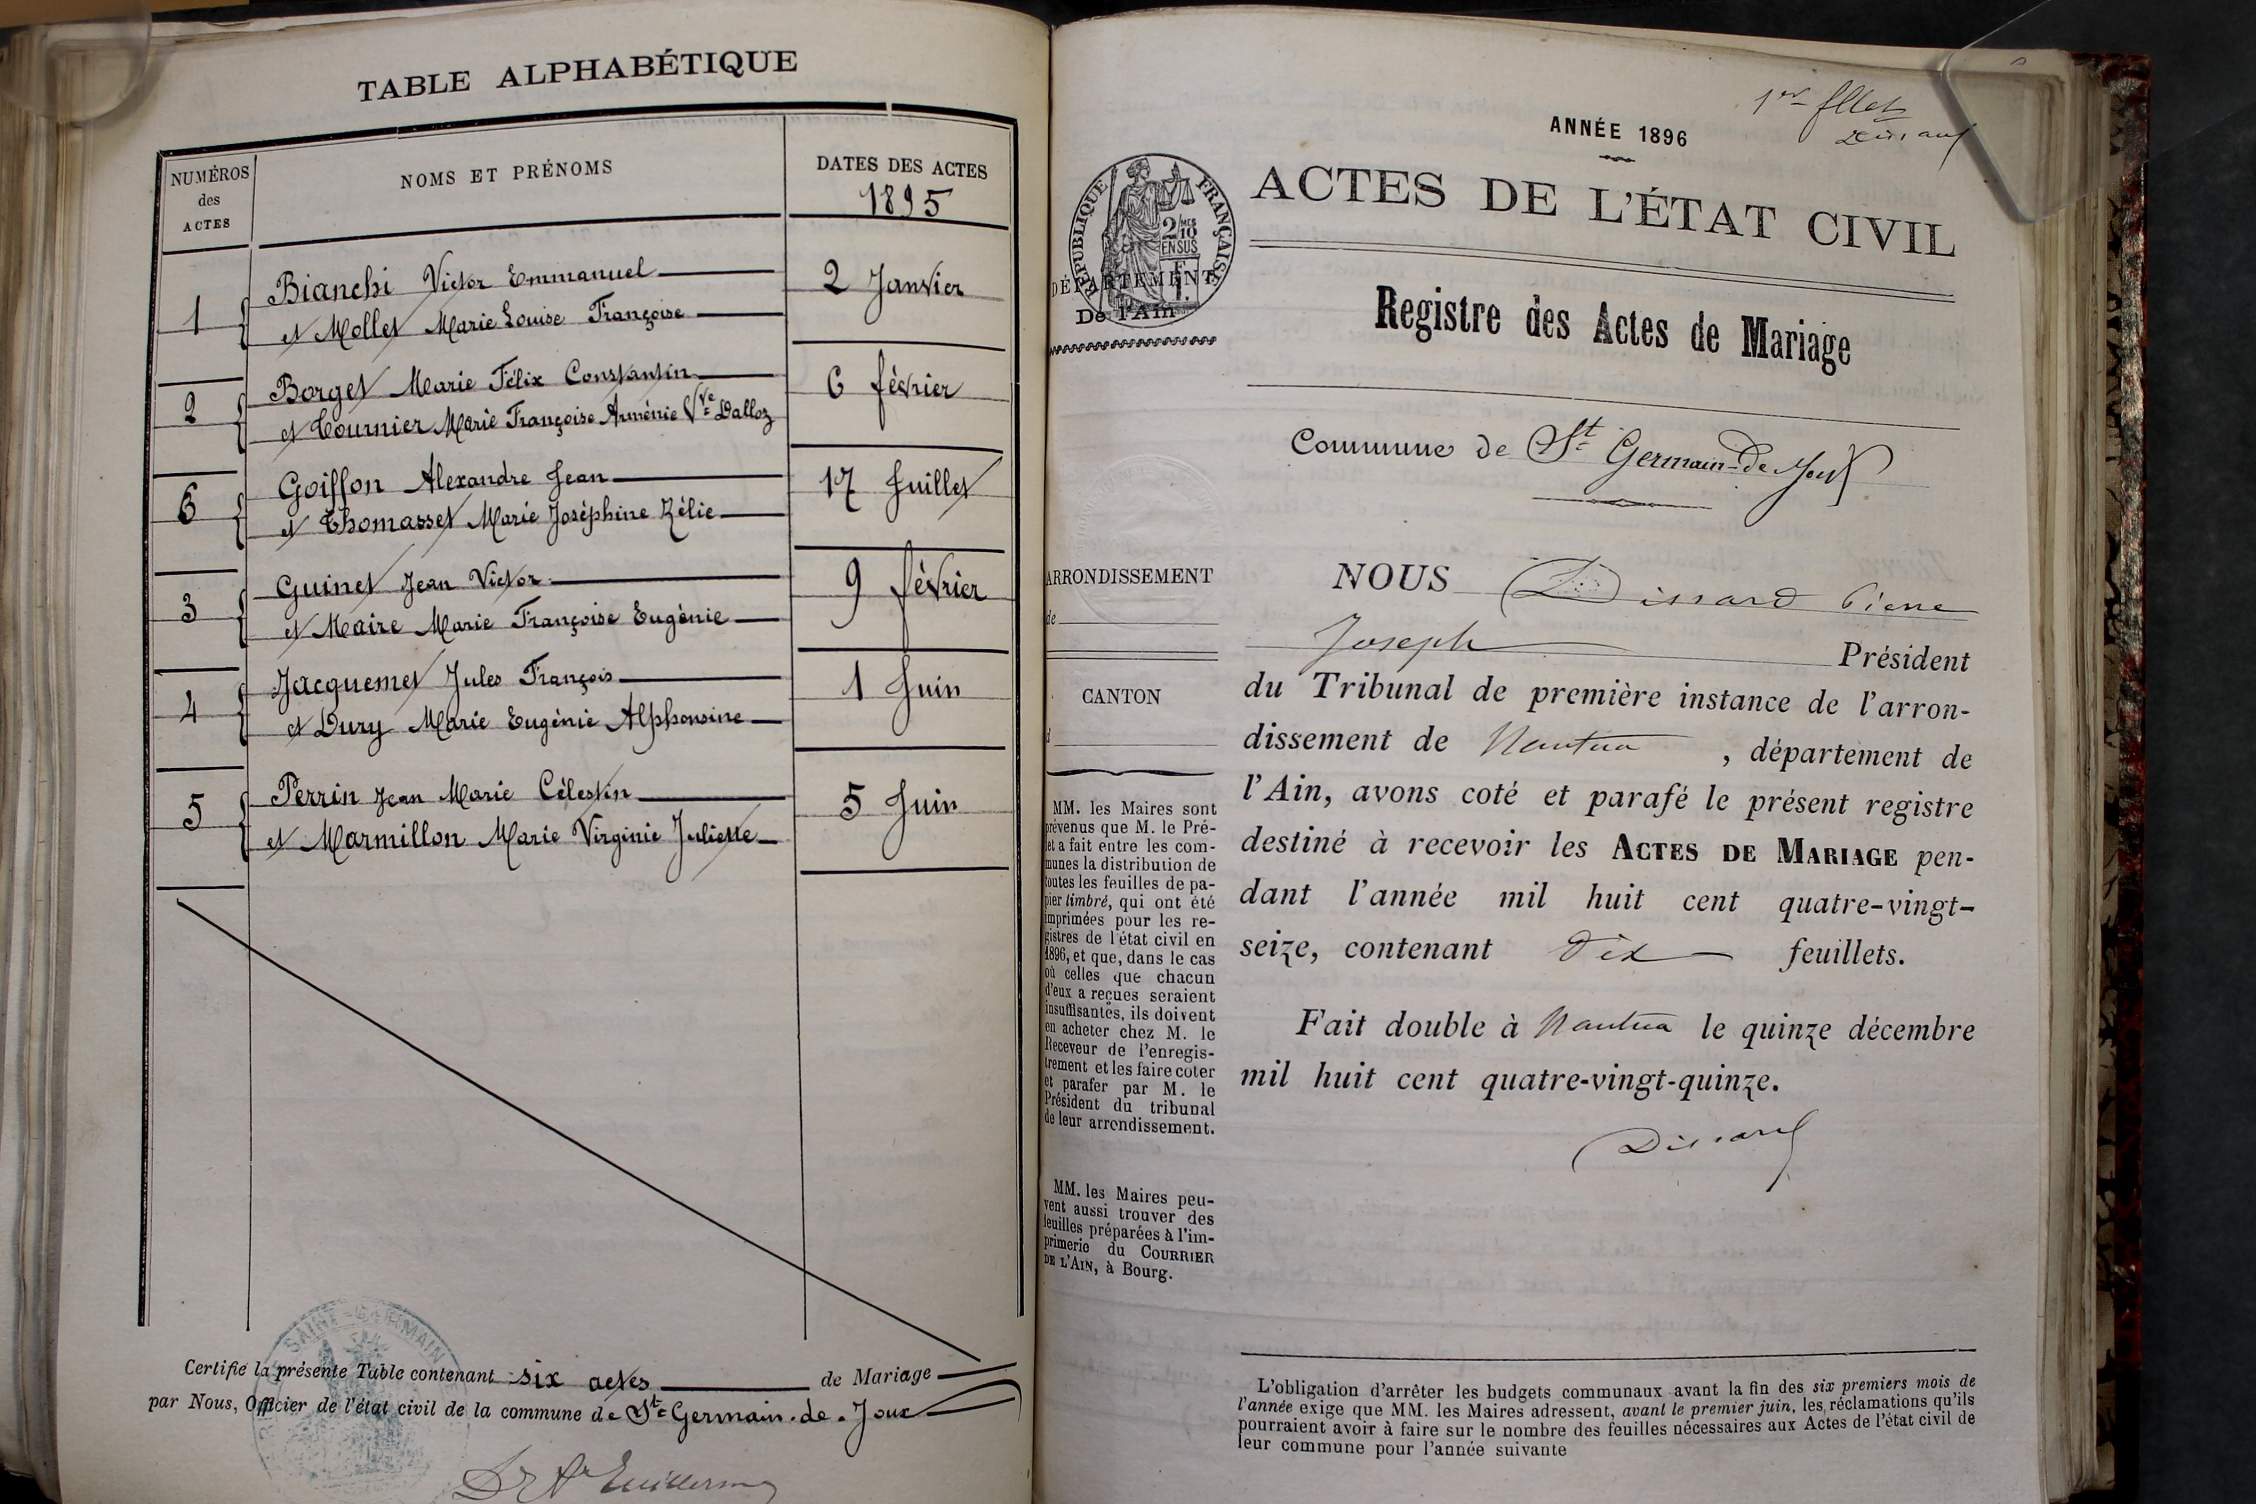 TABLE ALPHABÉTIQUE
NUMÉROS
des
ACTES
NOMS ET PRÉNOMS
DATES DES ACTES
1895
1
Bianchi Victor Emmanuel
et Mollet Marie Louise Françoise
2 Janvier
2
Borget Marie Félix Constantin
et Tournier Marie Françoise Arménie Vve Dalloz
6 février
6
Goiffon Alexandre Jean
et Thomasset Marie Joséphine Zélie
17 Juillet
3
Guinet Jean Victor
et Maire Marie Françoise Eugénie
9 février
4
Jacquemet Jules François
et Dury Marie Eugénie Alphonsine
1 Juin
5
Perrin Jean Marie Célestin
et Marmillon Marie Virginie Juliette
5 Juin
Certifié la présente Table contenant six actes de Mariage
par Nous, Officier de l'état civil de la commune de St Germain-de-Joux
SAINT-GERMAIN
1er fllet
Dissard
ANNÉE 1896
ACTES DE L'ÉTAT CIVIL
RÉPUBLIQUE FRANÇAISE
2/10
EN SUS
DÉPARTEMENT
De l'Ain
Registre des Actes de Mariage
Commune de St Germain-de-Joux
ARRONDISSEMENT
de
CANTON
d
MM. les Maires sont
prévenus que M. le Pré-
fet a fait entre les com-
munes la distribution de
toutes les feuilles de pa-
pier timbré, qui ont été
imprimées pour les re-
gistres de l'état civil en
1896, et que, dans le cas
où celles que chacun
d'eux a reçues seraient
insuffisantes, ils doivent
en acheter chez M. le
Receveur de l'enregis-
trement et les faire coter
et parafer par M. le
Président du tribunal
de leur arrondissement.
MM. les Maires peu-
vent aussi trouver des
feuilles préparées à l'im-
primerie du COURRIER
DE L'AIN, à Bourg.
NOUS Dissard Pierre
Joseph Président
du Tribunal de première instance de l'arron-
dissement de Nantua , département de
l'Ain, avons coté et parafé le présent registre
destiné à recevoir les ACTES DE MARIAGE pen-
dant l'année mil huit cent quatre-vingt-
seize, contenant dix feuillets.
Fait double à Nantua le quinze décembre
mil huit cent quatre-vingt-quinze.
Dissard
L'obligation d'arrêter les budgets communaux avant la fin des six premiers mois de
l'année exige que MM. les Maires adressent, avant le premier juin, les réclamations qu'ils
pourraient avoir à faire sur le nombre des feuilles nécessaires aux Actes de l'état civil de
leur commune pour l'année suivante